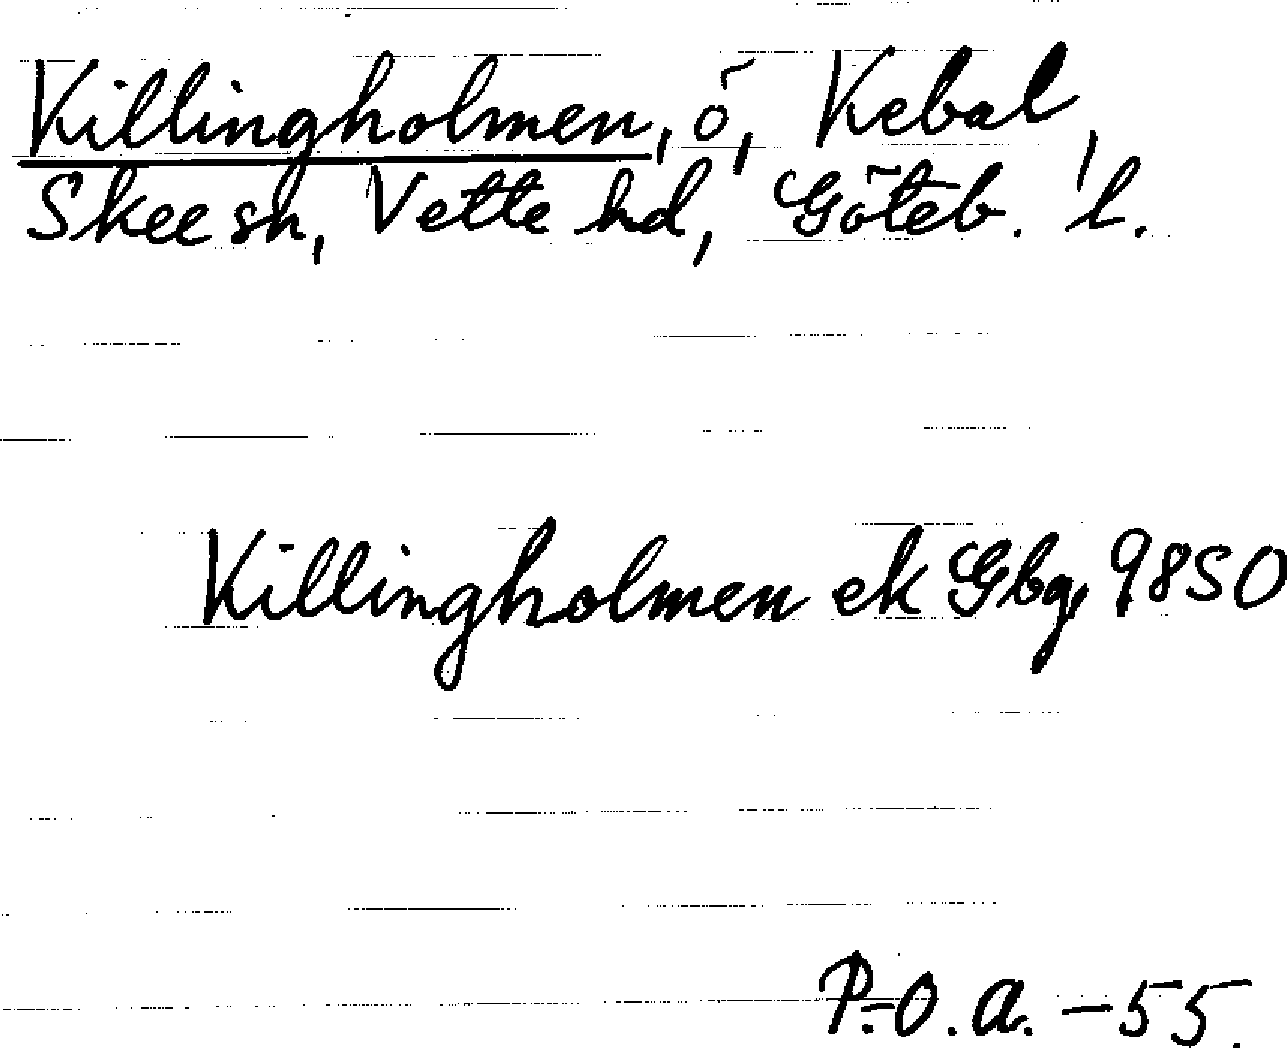 Killingholmen, ö, Kebal,
Skee sn, Vette hd, Göteb. l.
Killingholmen ek Gbg, 9850
P.-O. A. -55.